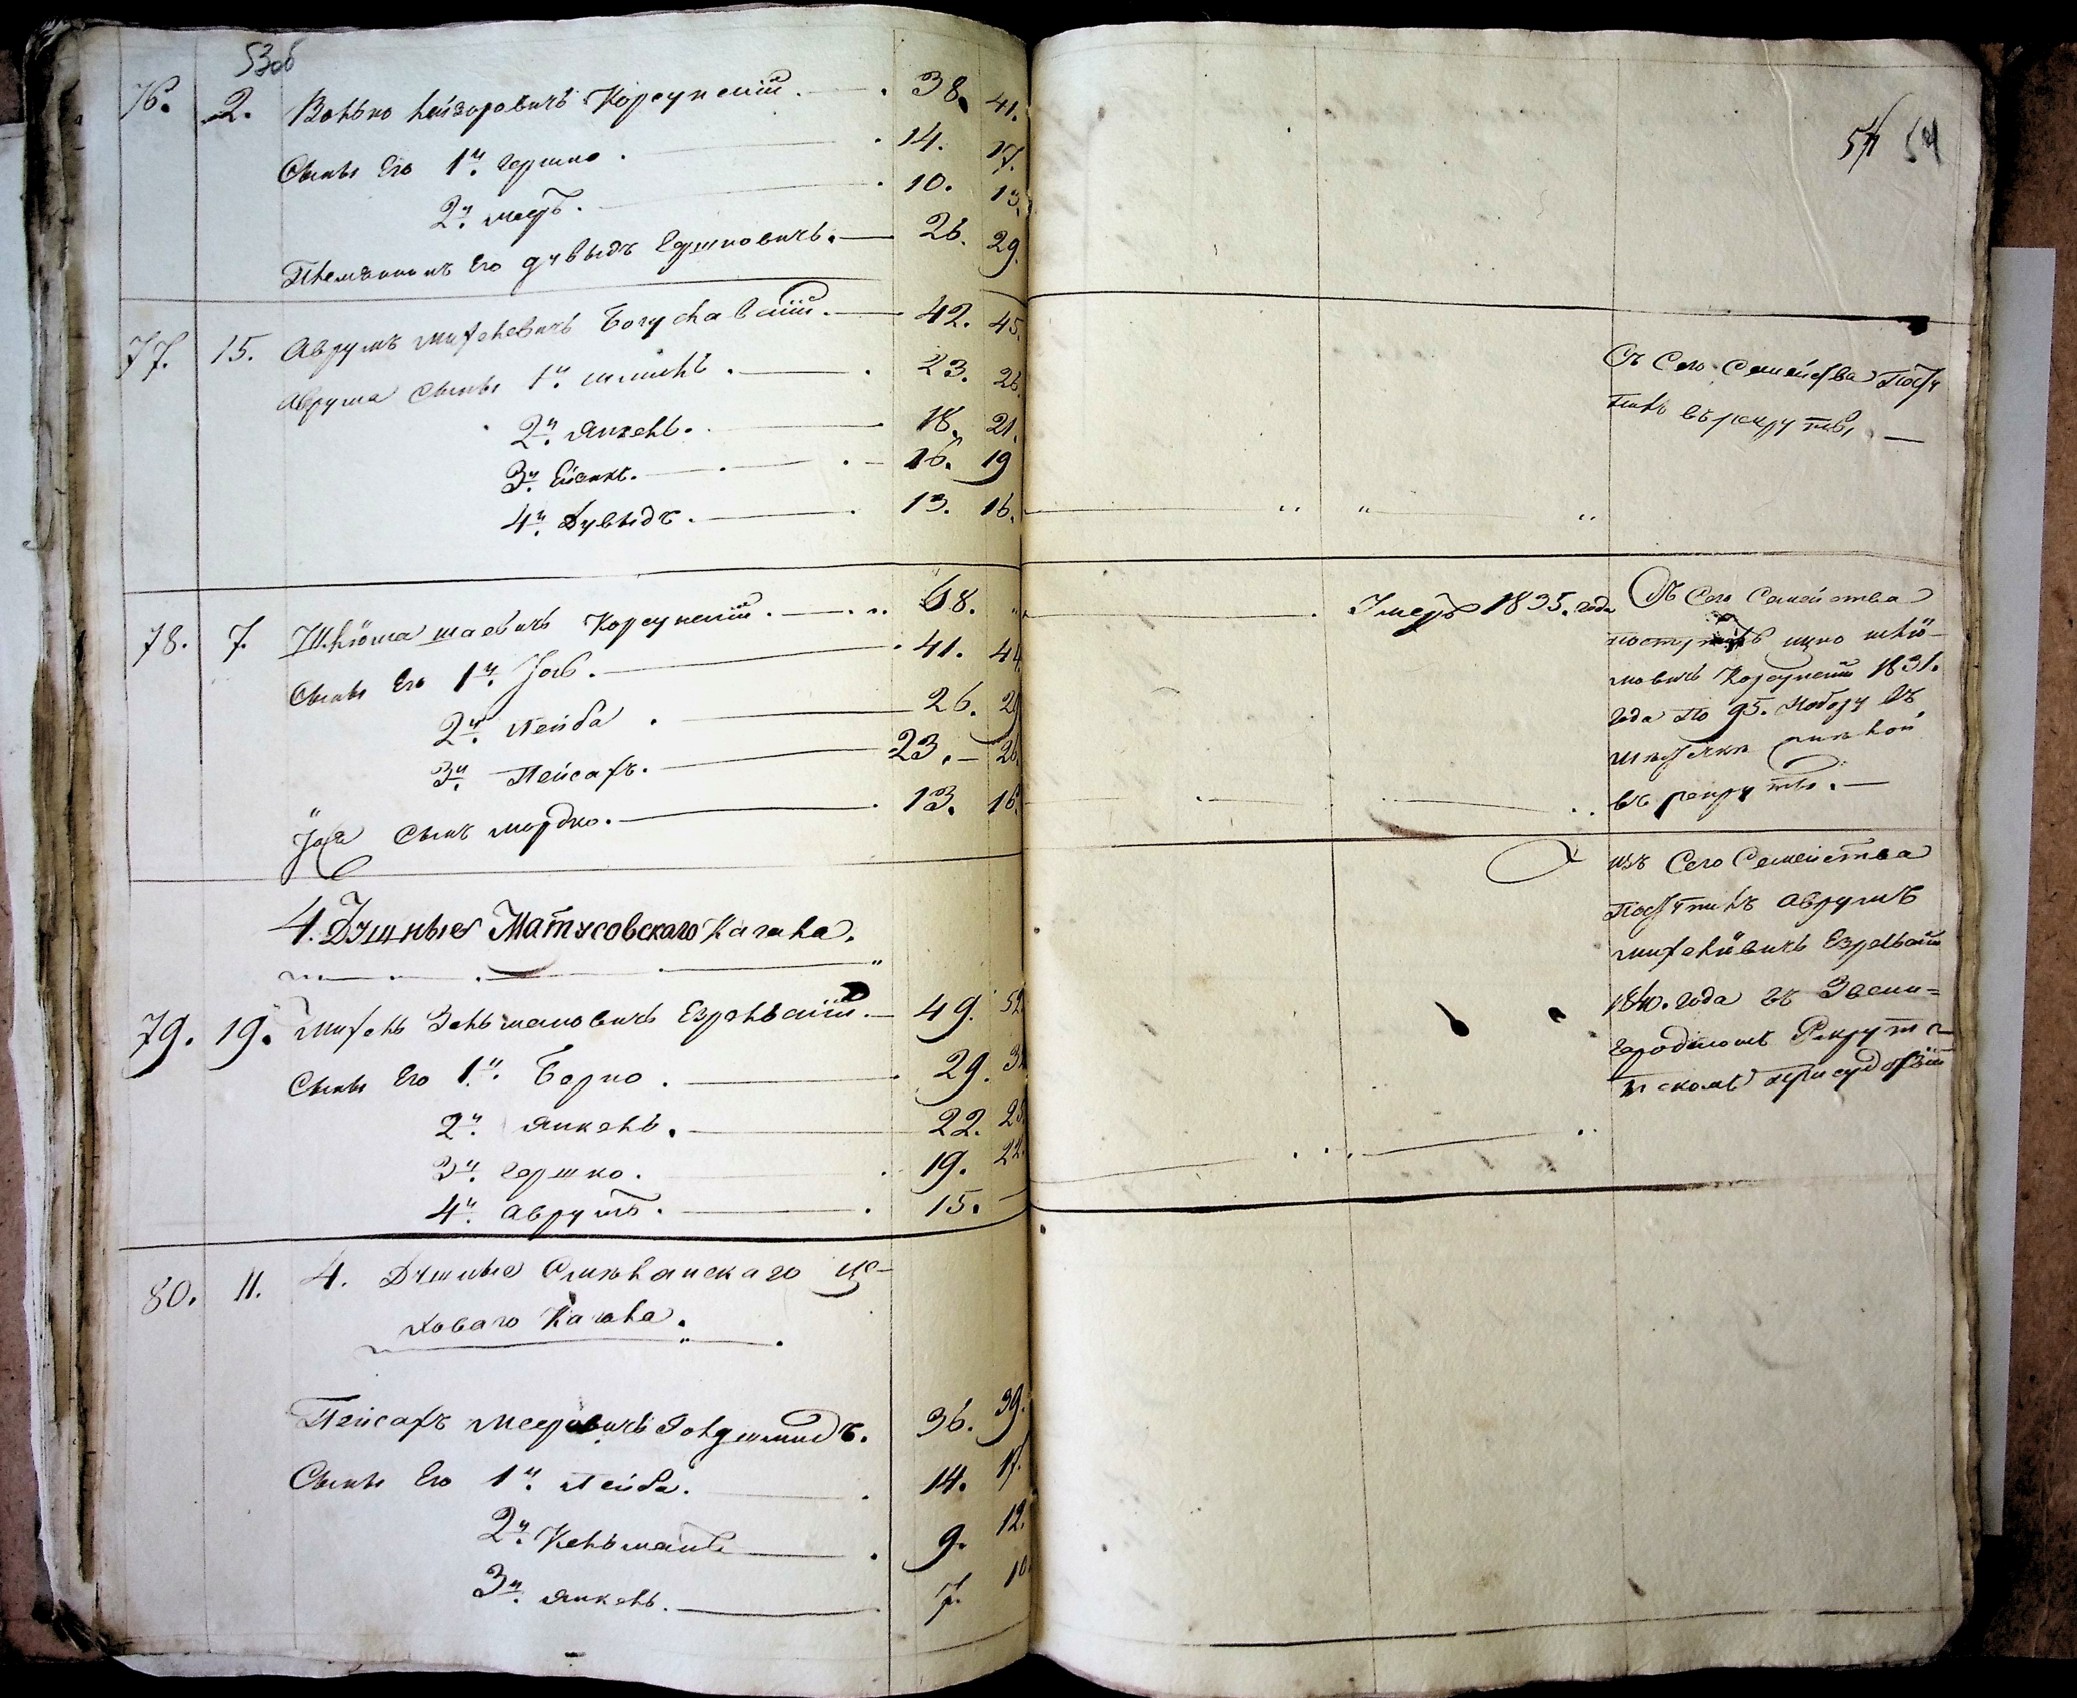 53об
76. 2. Волько Лейзоровичъ Корсунскій. 38. 41.
Сыны Его 1й Гершко. 14. 17.
2й Меэръ. 10. 13.
Племянникъ Его Дувыдъ Ершковичъ. 26. 29.
77. 15. Аврумъ Михелевичъ Богуславскій. 42. 45.
Аврума Сыны 1й Шмиль. 23. 26.
2й Янкель. 18. 21.
3й Ейсикъ. 16. 19
4й Дувыдъ. 13. 16.
78. 7. Шліома Шаевичъ Корсунскій. 68. "
Сыны Его 1й Іосъ. 41. 44
2й Лейба. 26. 29
3й Пейсахъ. 23. 26.
Іося Сынъ Мордко. 13. 16.
4. Душные Матусовскаго Кагала.
79. 19. Михель Зельмановичъ Езрельскій. 49. 52.
Сыны Его 1й Берко. 29. 32
2й Янкель. 22. 25.
3й Гершко. 19. 22.
4й Аврумъ. 15.
80. 11. 4. Душные Смилянскаго Це-
ховаго Кагала.
Пейсахъ Меэровичъ Голдшмидъ. 36. 39.
Сыны Его 1й Лейба. 14. 17.
2й Кельманъ 9. 12.
3й Янкель. 7. 10
54 54
Съ Сего Семейства Посту
пилъ въ рекруты.
Умеръ 1835. года
Съ Сего Семейства
поступилъ Ицко Шліо-
мовичъ Корсунскій 1831.
года по 95. Набору въ
въ рекруты.
изъ Сего Семейства
Поступилъ Аврумъ
Михелювичъ Езрельскій
1840. года въ Звени=
городскомъ Рекрутс-
комъ присудствіи